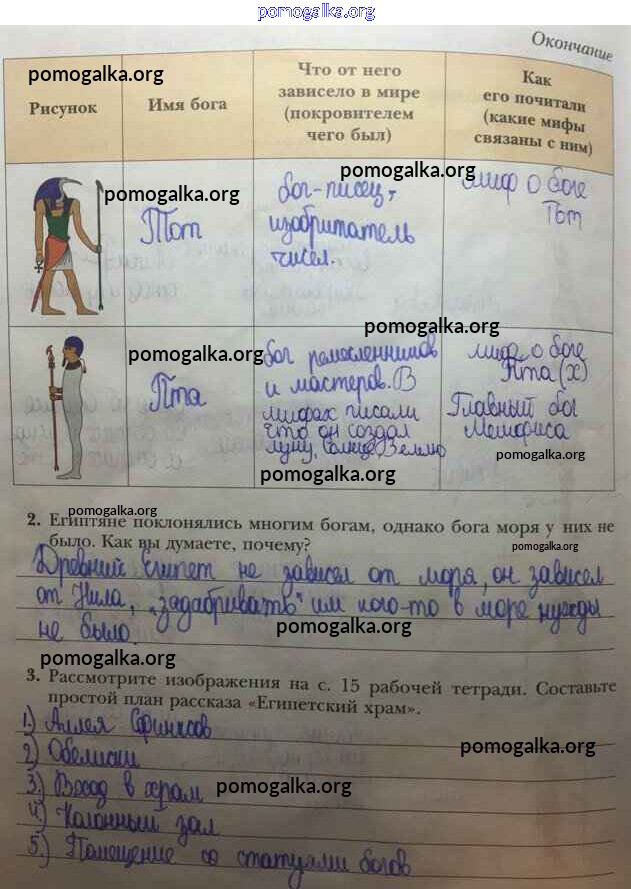 pomogalka.org
Окончание
pomogalka.org
Рисунок
Имя бога
Что от него
зависело в мире
(покровителем
чего был)
Как
его почитали
(какие мифы
связаны с ним)
pomogalka.org
pomogalka.org
Тот
бог-писец,
изобритатель
чисел.
миф о боге
Тот
pomogalka.org
pomogalka.org
Пта
бог ремесленников
и мастеров. В
мифах писали
что он создал
луну, Солнце, Землю
миф о боге
Пта (х)
Главный бог
Мемфиса
pomogalka.org
pomogalka.org
pomogalka.org
2. Египтяне поклонялись многим богам, однако бога моря у них не
было. Как вы думаете, почему?
pomogalka.org
Древний Египет не зависел от моря, он зависел
от Нила, „задабривать" им кого-то в море нужды
не было.
pomogalka.org
pomogalka.org
3. Рассмотрите изображения на с. 15 рабочей тетради. Составьте
простой план рассказа «Египетский храм».
1.) Аллея Сфинксов
2) Обелиски
pomogalka.org
3.) Вход в храм
pomogalka.org
4.) Колонный зал
5.) Помещение со статуями богов